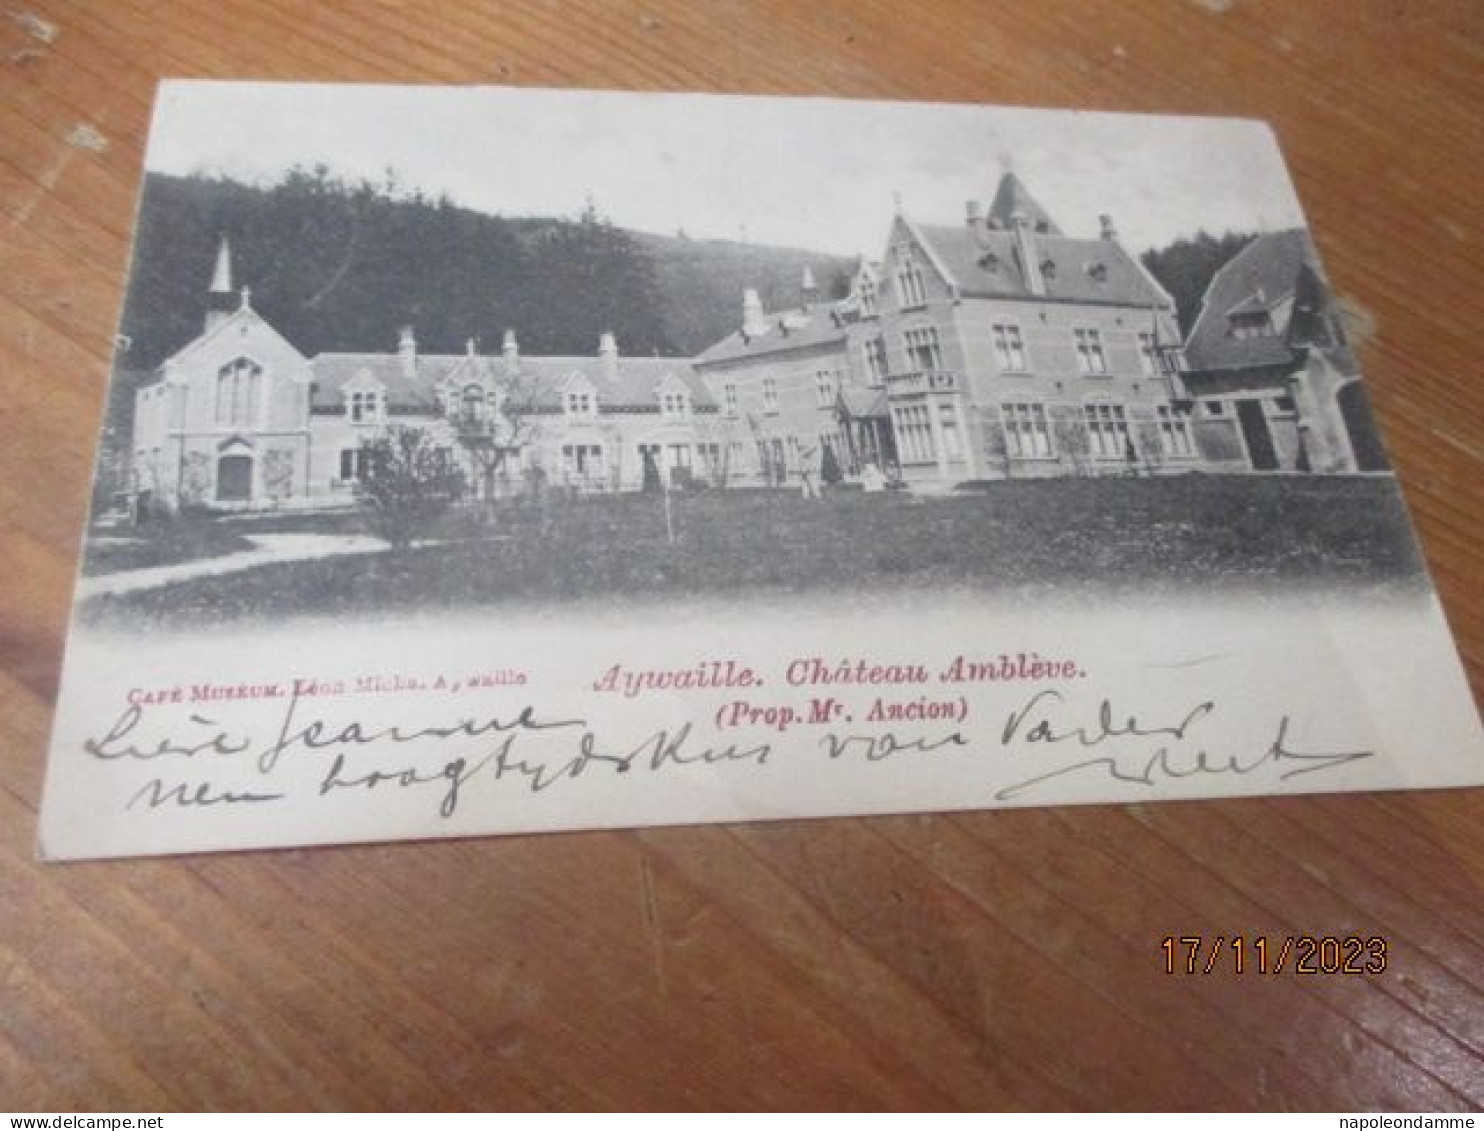 CAFÉ MUSEUM. Léon Micha. Aywaille
Aywaille. Château Amblève.
(Prop. Mr. Ancion)
Lière Jeanne
hoogtydskus van Vader
17/11/2023
napoleondamme